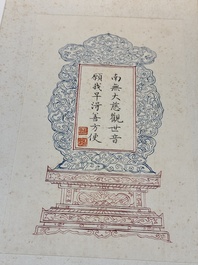 南無大慈觀世音
願我早得善方便